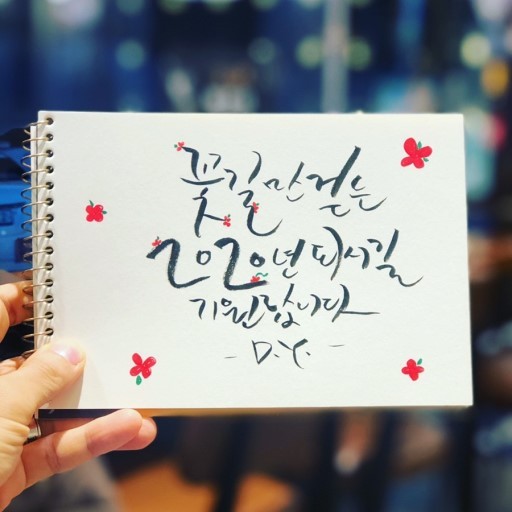 꽃길만 걷는
2020년 되시길
기원합니다
- D.Y. -